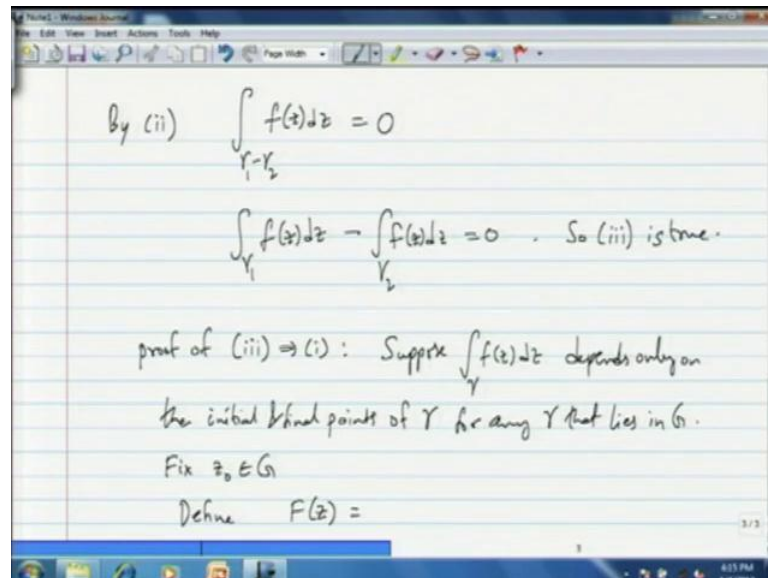 Note1 - Windows Journal
File Edit View Insert Actions Tools Help
Page Width
By (ii) ∫ f(z)dz = 0
γ₁-γ₂
∫ f(z)dz - ∫ f(z)dz = 0 . So (iii) is true.
γ₁ γ₂
proof of (iii) ⇒ (i) : Suppose ∫ f(z)dz depends only on
γ
the initial & final points of γ for any γ that lies in G.
Fix z₀ ∈ G
Define F(z) =
3/3
3
4:15 PM